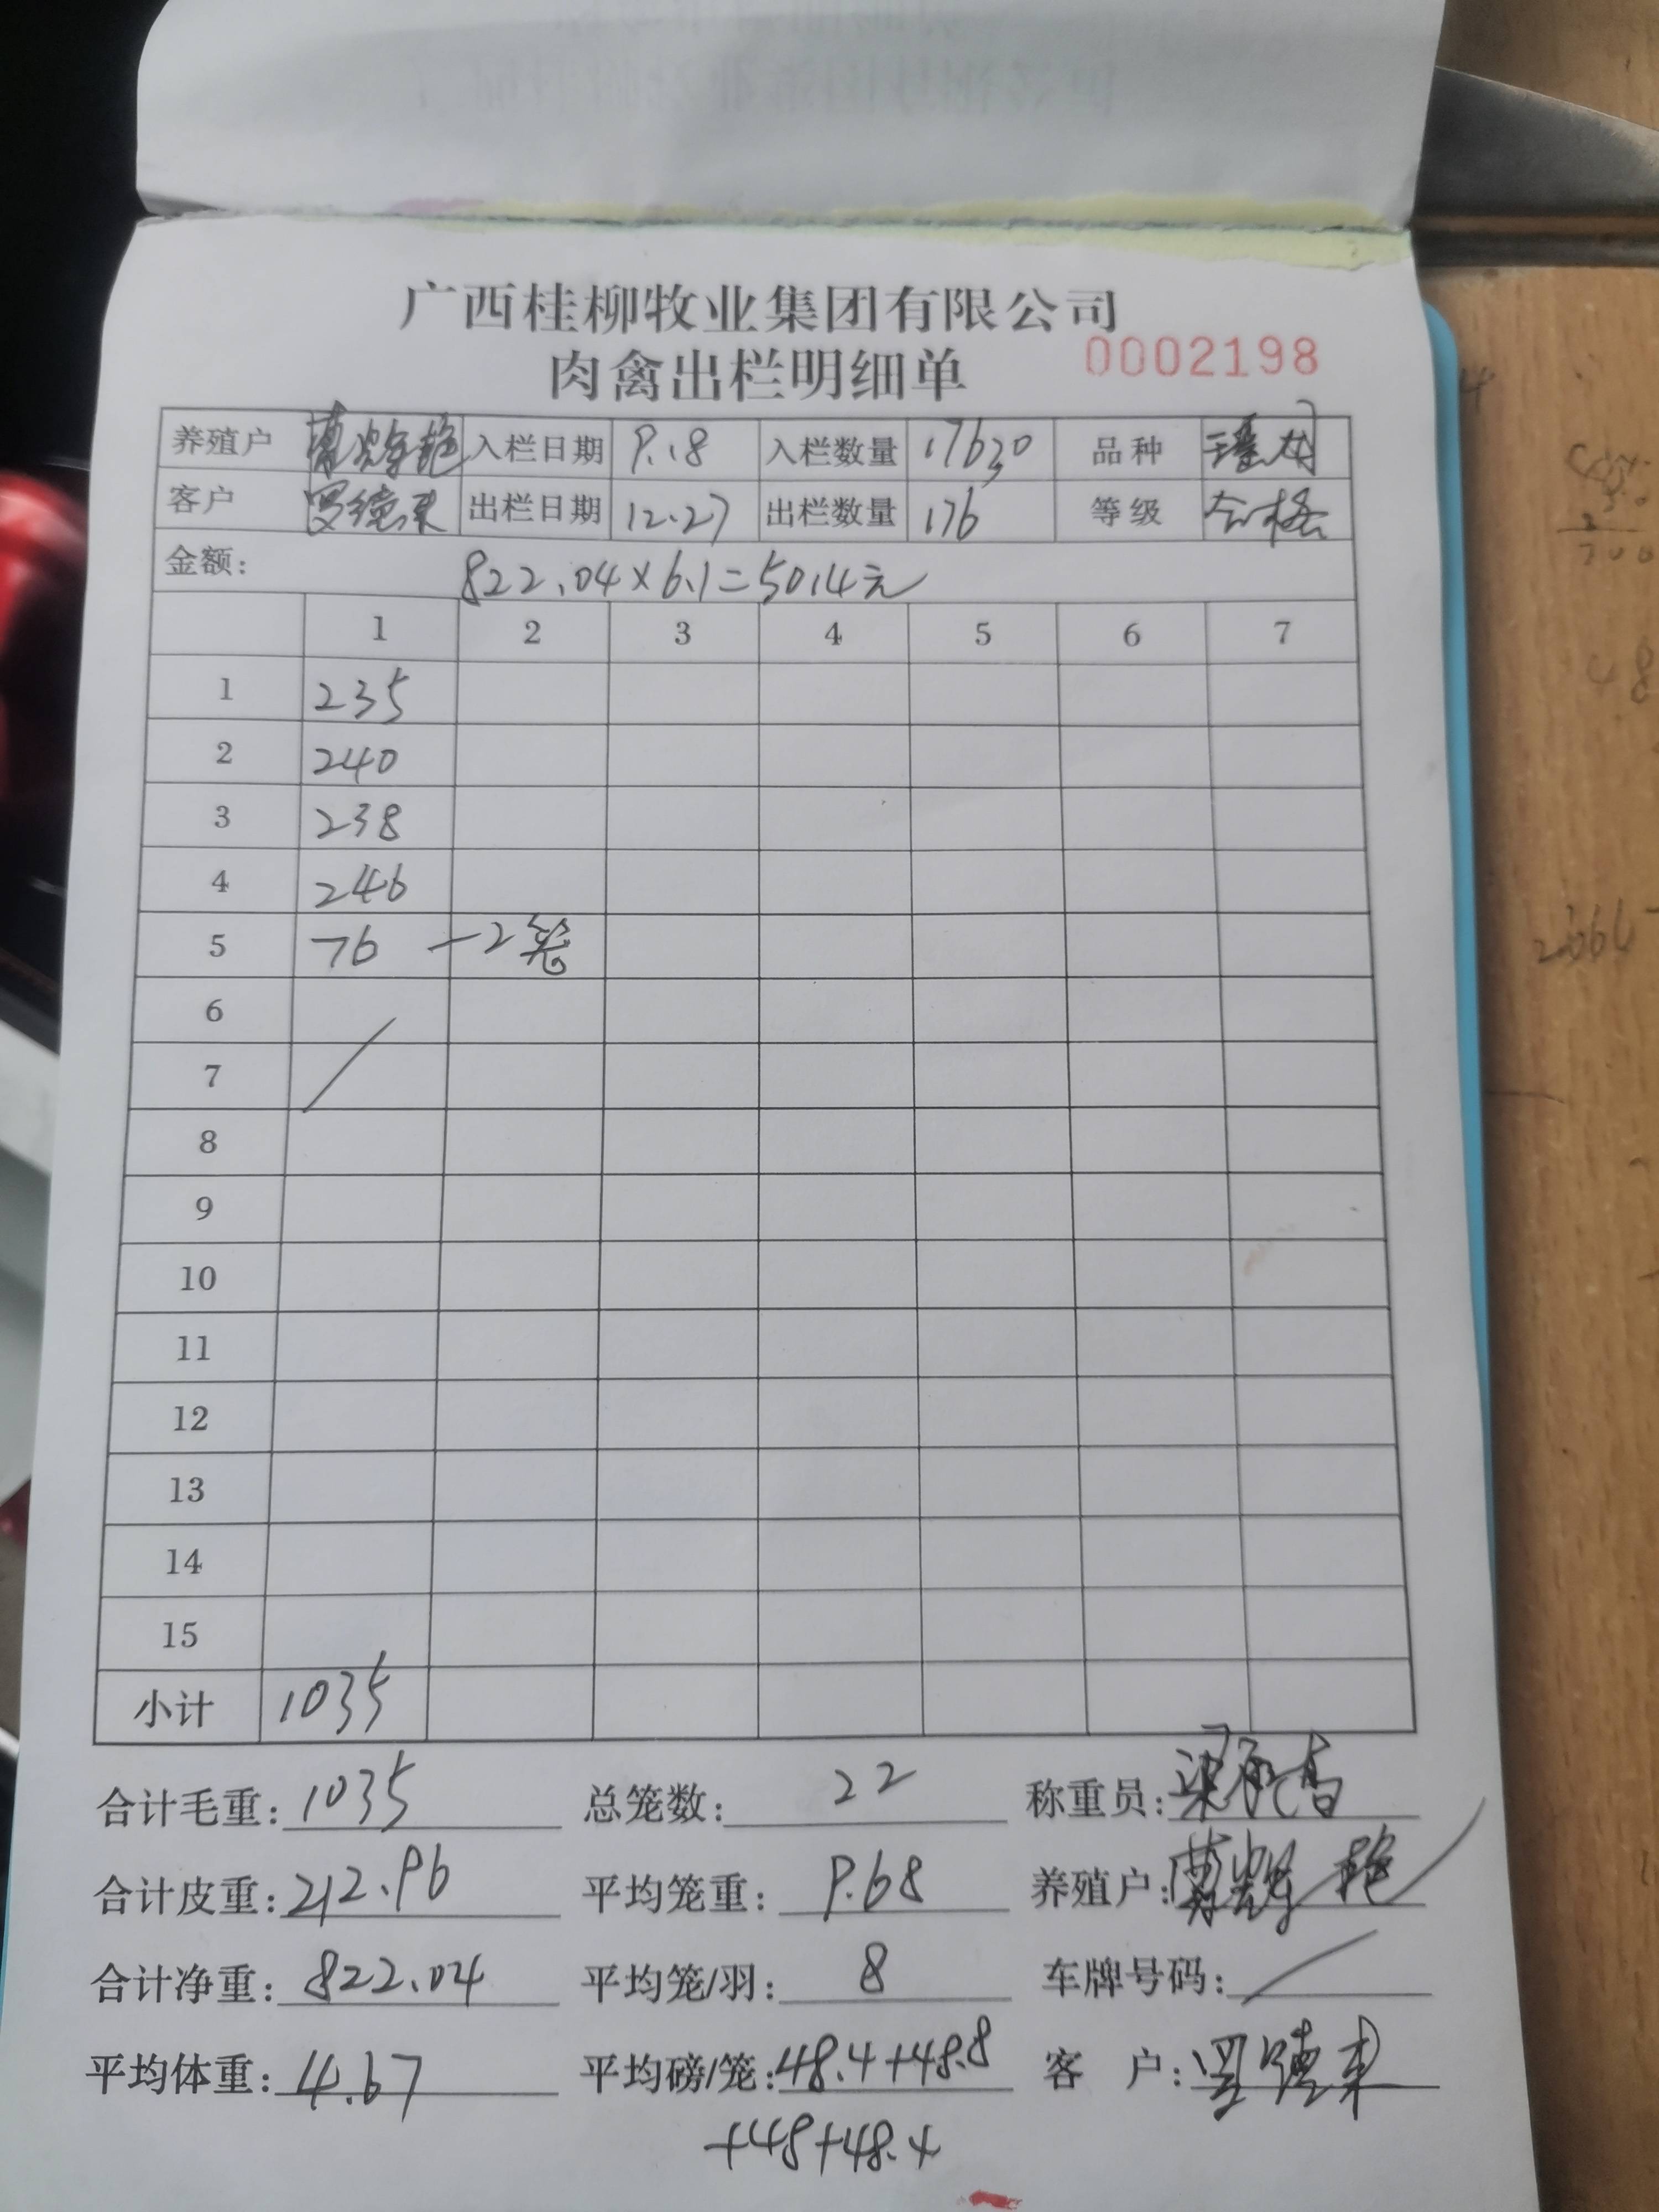 广西桂柳牧业集团有限公司
肉禽出栏明细单 0002198
养殖户 入栏日期 9.18 入栏数量 17630 品种 瑶
客户 罗德来 出栏日期 12.27 出栏数量 176 等级 合格
金额: 822.04×6.1=5014元
1 2 3 4 5 6 7
1 235
2 240
3 238
4 246
5 76 —2笼
6
7
8
9
10
11
12
13
14
15
小计 1035
合计毛重: 1035 总笼数: 22 称重员: 梁
合计皮重: 212.96 平均笼重: 9.68 养殖户:
合计净重: 822.04 平均笼/羽: 8 车牌号码: /
平均体重: 4.67 平均磅/笼: 48.4+48.8 客户: 罗德来
+48+48.4